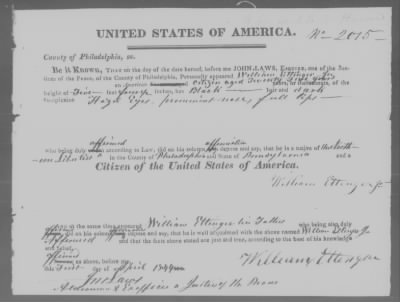 UNITED STATES OF AMERICA.
No 2015
County of Philadelphia, ss.
Be it Known, That on the day of the date hereof, before me JOHN LAWS, Esquire, one of the Jus-
tices of the Peace, of the County of Philadelphia, Personally appeared William Ettinger Jr
an American Citizen aged Twenty years or thereabouts, of the
height of Five feet inches, has Black hair and dark
complexion Hazel Eyes. prominent nose, full lips
affirmed affirmation
who being duly according to Law, did on his solemn depose and say, that he is a native of the North-
ern Liberties in the County of Philadelphia and State of Pennsylvania and a
Citizen of the United States of America.
William Ettinger Jr
And at the same time appeared William Ettinger his Father who being also duly
Affirmed did on his solemn depose and say, that he is well acquainted with the above named William Ettinger Jr
and that the facts above stated are just and true, according to the best of his knowledge
and belief.
Affirmed as above, before me
this First day of April 1844
William Ettinger
Jno Laws
Alderman & Ex officio a Justice of the Peace